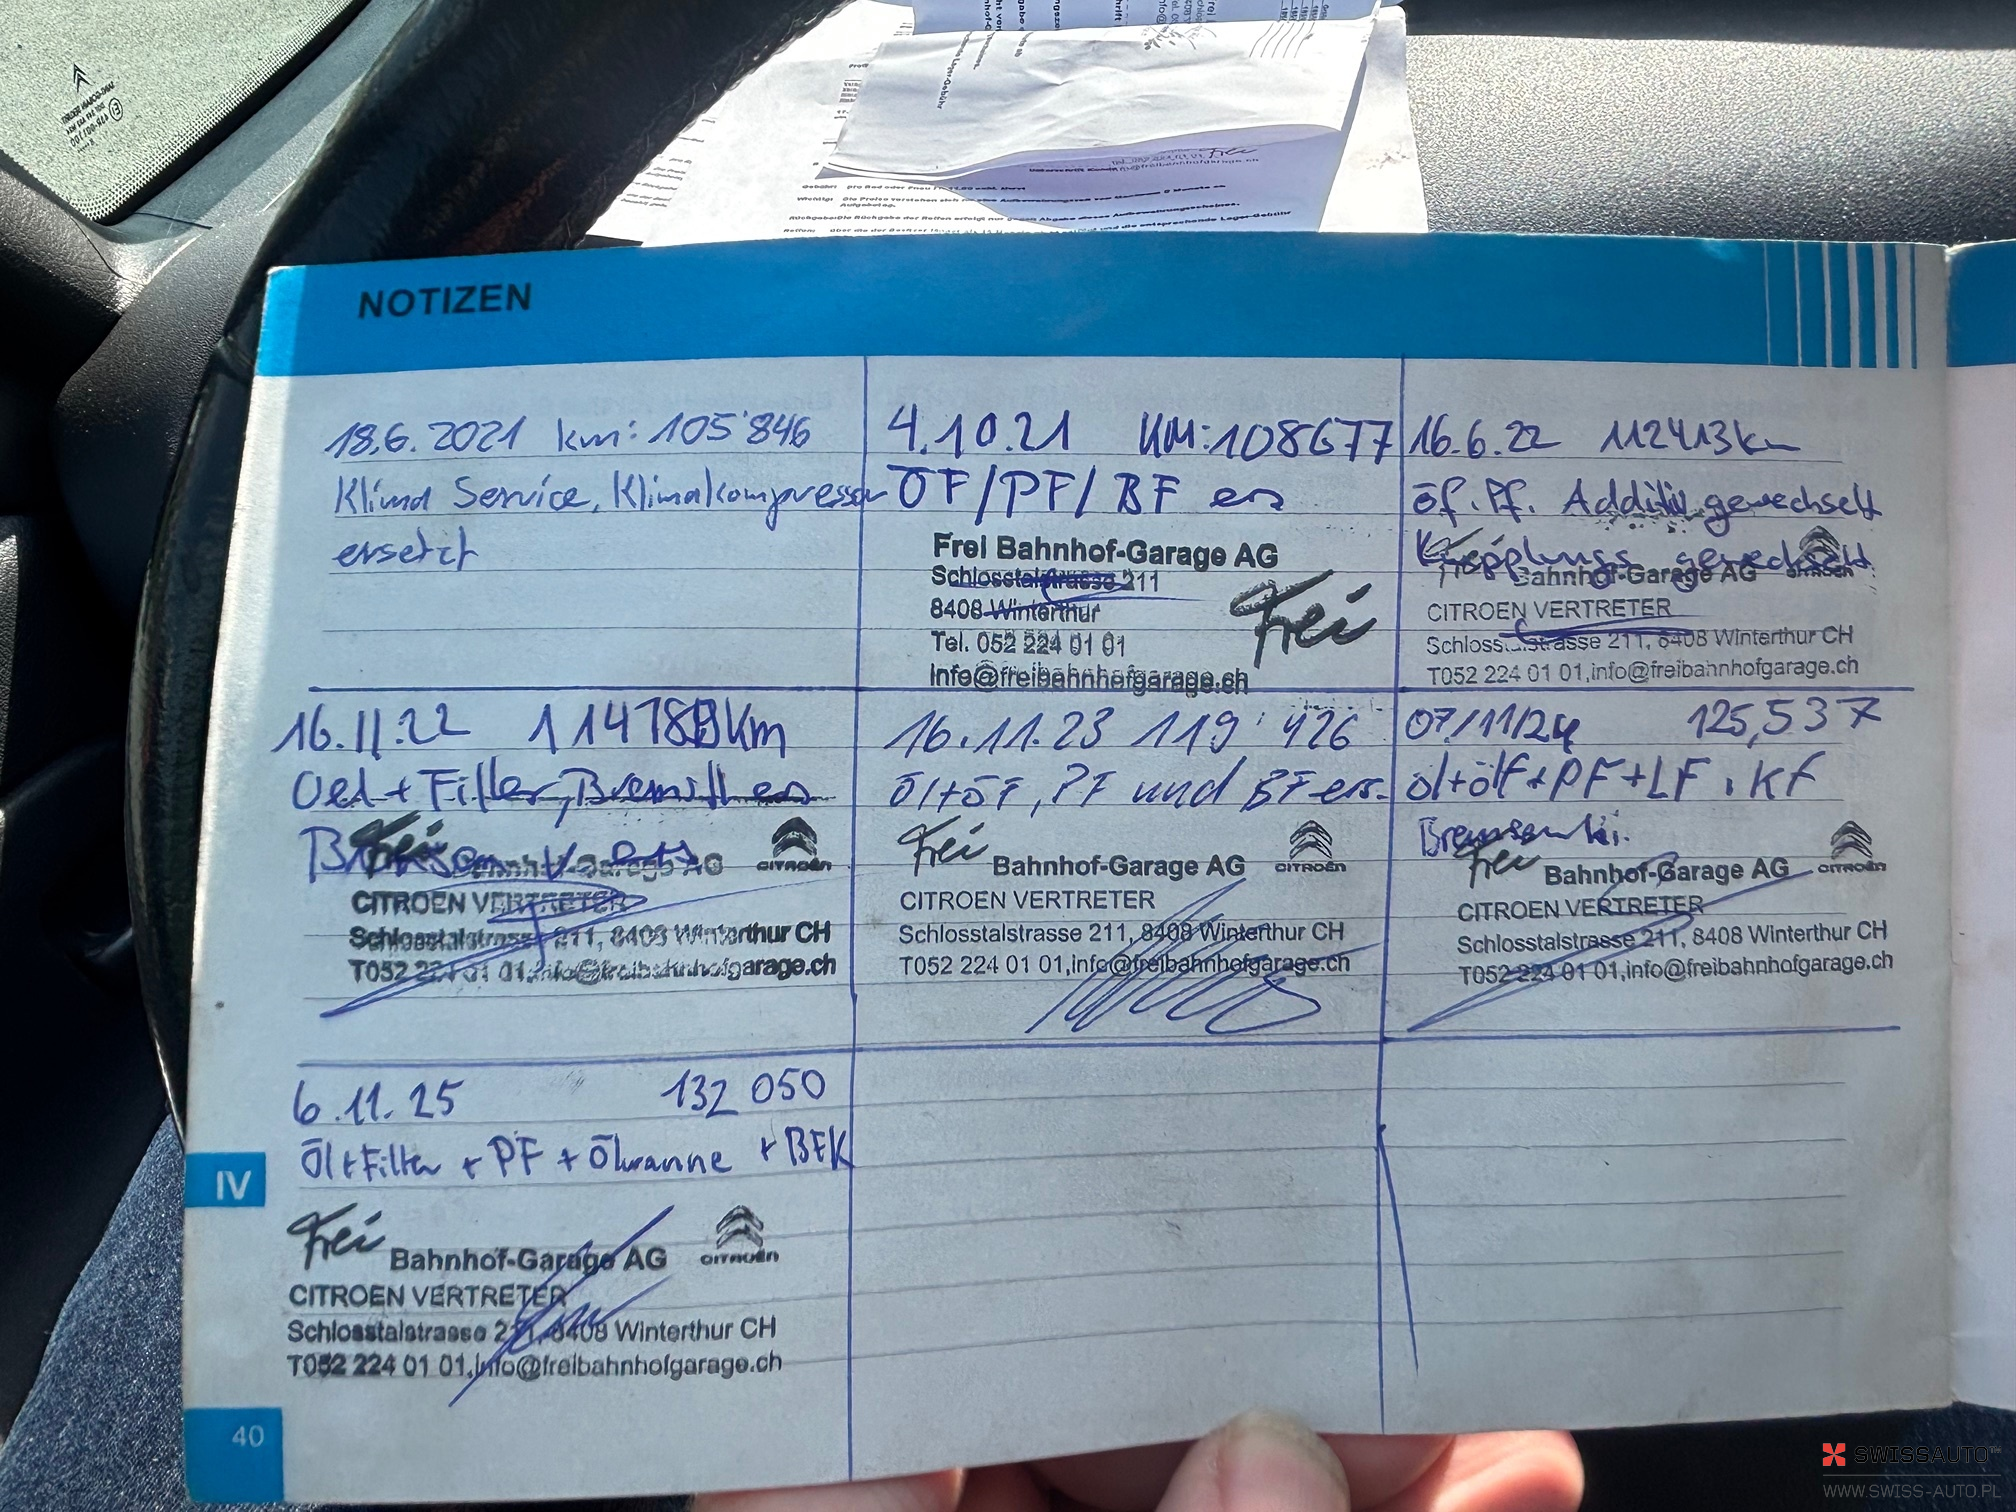 NOTIZEN
18.6.2021 km: 105'846
Klima Service, Klimakompressor
ersetzt
4.10.21 KM:108677
ÖF/PF/BF ers
Frei Bahnhof-Garage AG
Schlosstalstrasse 211
8408 Winterthur
Tel. 052 224 01 01
info@freibahnhofgarage.ch
Frei
16.6.22 112413km
öf. Pf. Additiv gewechselt
gewechselt
Bahnhof-Garage AG CITROËN
CITROEN VERTRETER
Schlosstalstrasse 211, 8408 Winterthur CH
T052 224 01 01,info@freibahnhofgarage.ch
16.11.22 Km
Oel + Filter,
Frei Bahnhof-Garage AG CITROËN
CITROEN VERTRETER
Schlosstalstrasse 211, 8408 Winterthur CH
T052 224 01 01,info@freibahnhofgarage.ch
16.11.23 119'426
Öl+ÖF, PF und BF ers.
Frei Bahnhof-Garage AG CITROËN
CITROEN VERTRETER
Schlosstalstrasse 211, 8408 Winterthur CH
T052 224 01 01,info@freibahnhofgarage.ch
07/11/24 125,537
öl+ölf+PF+LF, KF
Frei Bahnhof-Garage AG CITROËN
CITROEN VERTRETER
Schlosstalstrasse 211, 8408 Winterthur CH
T052 224 01 01,info@freibahnhofgarage.ch
6.11.25 132 050
Öl+Filter + PF + Ölwanne + BFK
Frei Bahnhof-Garage AG CITROËN
CITROEN VERTRETER
Schlosstalstrasse 211, 8408 Winterthur CH
T052 224 01 01,info@freibahnhofgarage.ch
IV
40
SWISSAUTO
WWW.SWISS-AUTO.PL